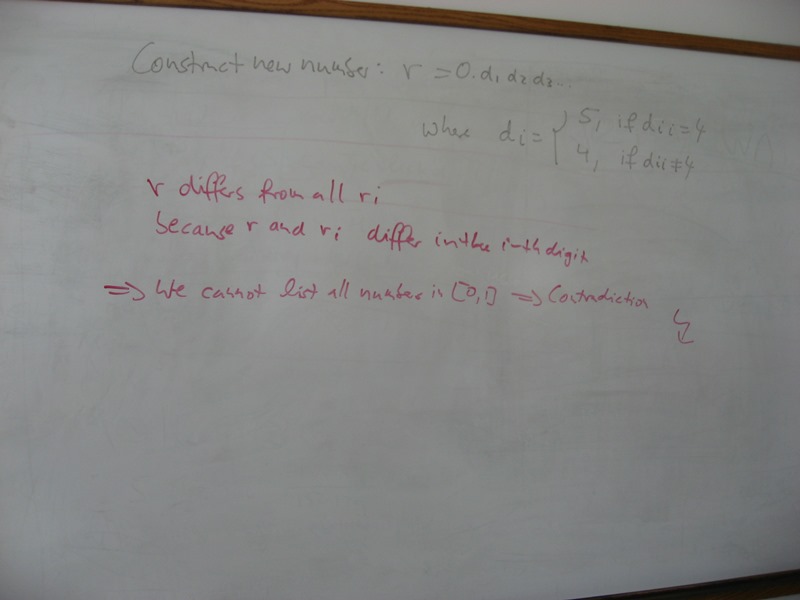 Construct new number: r = 0.d1 d2 d3...
where di = { 5, if dii = 4
4, if dii ≠ 4
r differs from all ri
because r and ri differ in the i-th digit
⇒ We cannot list all number in [0,1] ⇒ Contradiction ↯